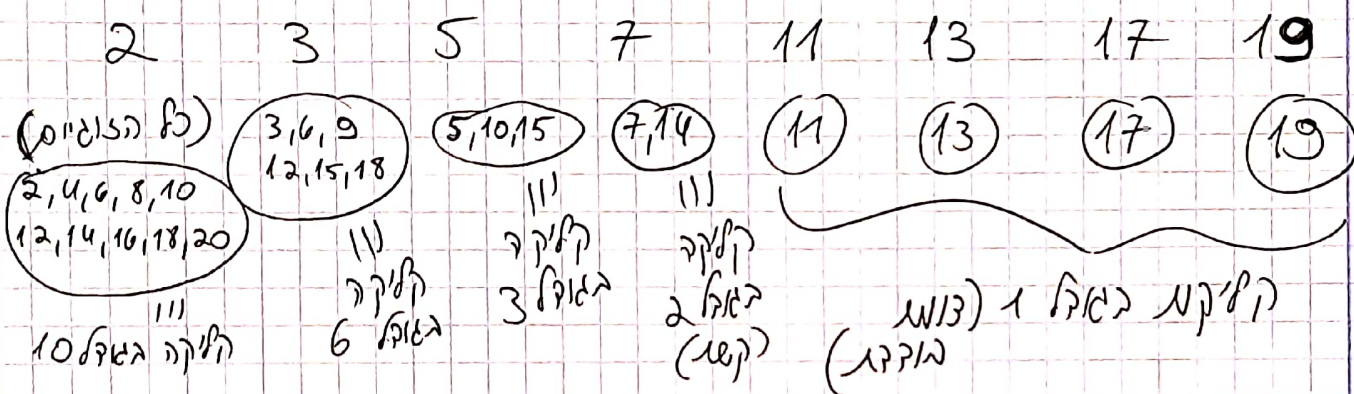 2 3 5 7 11 13 17 19
(כל הזוגיים)
2,4,6,8,10
12,14,16,18,20
קליקה בגודל 10
3,6,9
12,15,18
קליקה
בגודל 6
5,10,15
קליקה
בגודל 3
7,14
קליקה
בגודל 2
(קשת)
11 13 17 19
קליקות בגודל 1 (צומת
בודדת)